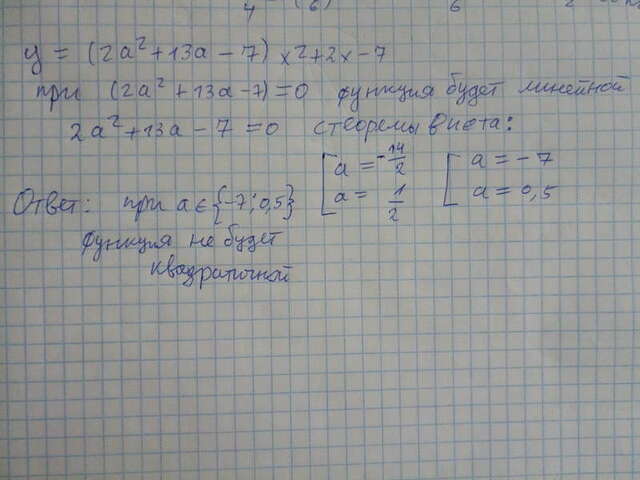 y = (2a²+13a-7) x²+2x-7
при (2a²+13a-7)=0 функция будет линейной
2a²+13a-7=0 с теоремы Виета:
[ a = -14/2 [ a = -7
a = 1/2 a = 0,5
Ответ: при a ∈ {-7; 0,5}
функция не будет
квадратичной